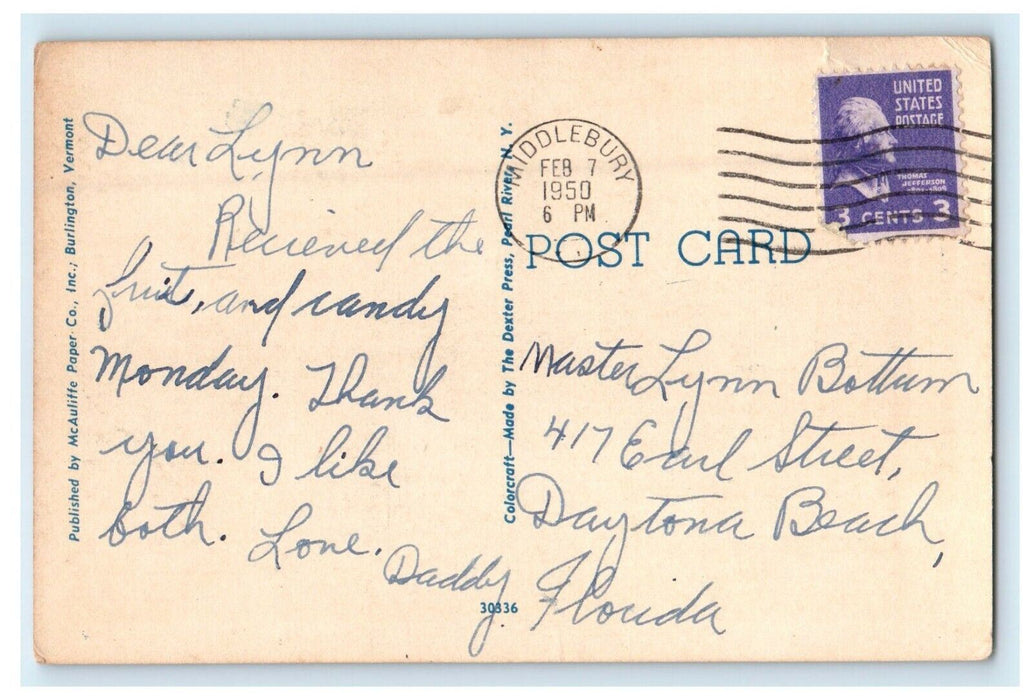 Published by McAuliffe Paper Co., Inc., Burlington, Vermont
Dear Lynn
Recieved the
fruit, and candy
Monday. Thank
you. I like
both. Love.
Daddy
Colorcraft—Made by The Dexter Press, Pearl River, N. Y.
30336
MIDDLEBURY
FEB 7
1950
6 PM
UNITED
STATES
POSTAGE
THOMAS
JEFFERSON
3 CENTS 3
POST CARD
Master Lynn Bottum
417 Earl Street,
Daytona Beach,
Florida